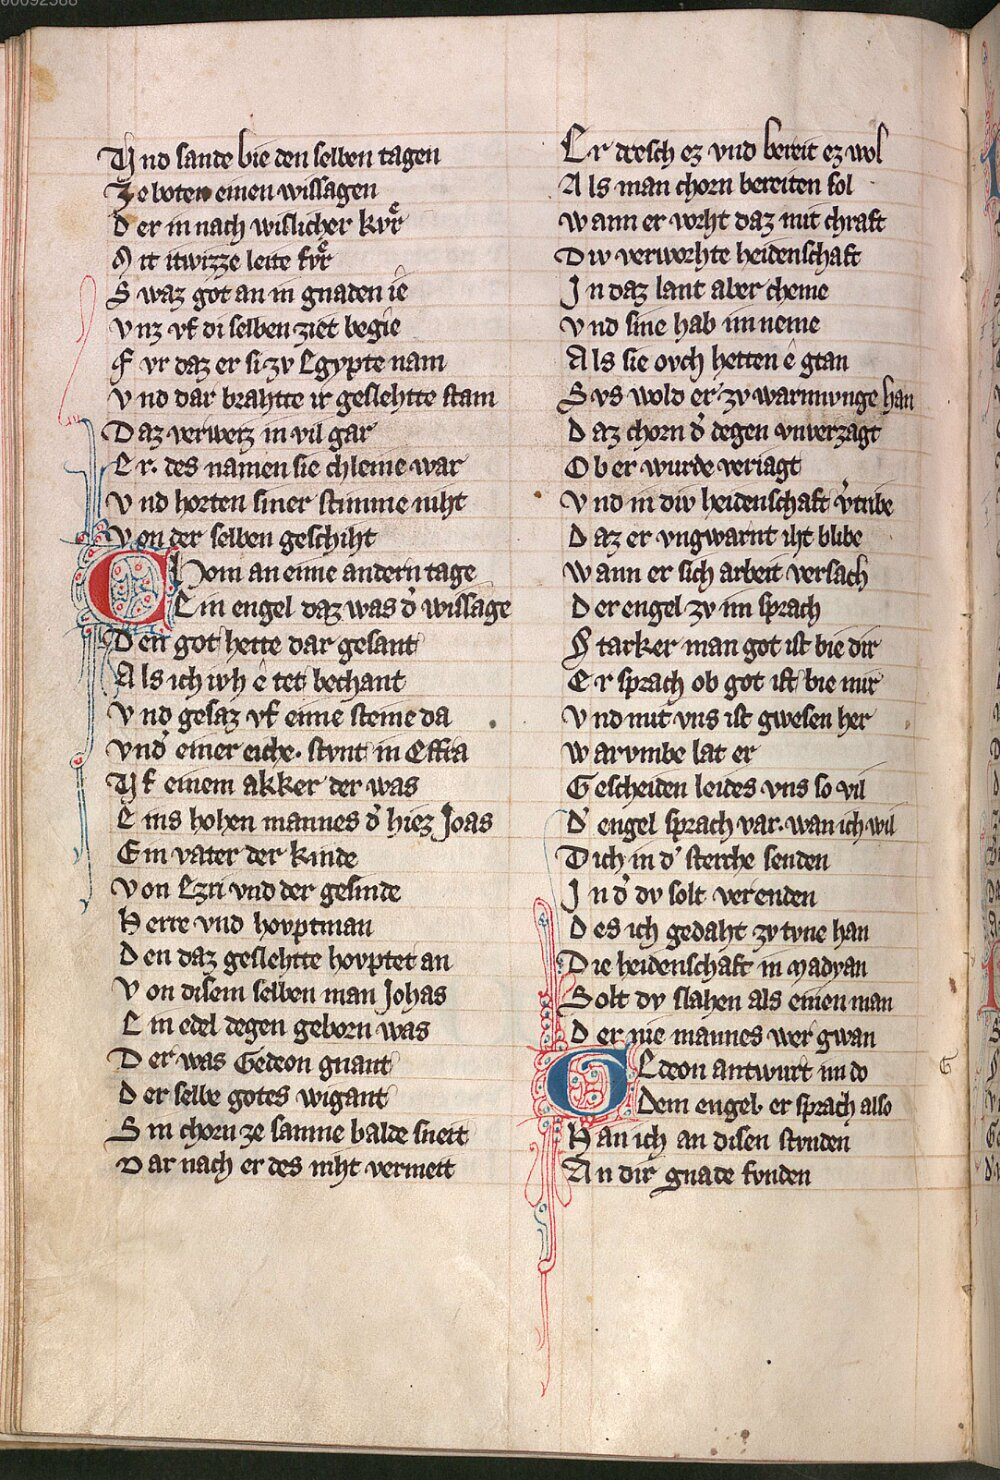 00092388
Vnd sande bie den selben tagen
Ze boten einen wissagen
Der in nach wislicher kvͤr
Mit itwizze leite fvͤr
Swaz got an in gnaden ie
Vnz vf di selben ziet begie
Fvr daz er si zv Egypte nam
Vnd dar brahtte ir geslehtte stam
Daz verweiz in vil gar
Er. des namen sie chleine war
Vnd horten siner stimme niht
Von der selben geschiht
Chom an eime andern tage
Ein engel daz was d' wissage
Den got hette dar gesant
Als ich iwh ê tet bechant
Vnd gesaz vf eime steine da
Vnd' einer eiche. stvnt in Effra
Vf einem akker der was
Eins hohen mannes d' hiez Joas
Ein vater der kinde
Von Ezri vnd der gesinde
Herre vnd hovptman
Den daz geslehtte hovptet an
Von disem selben man Johas
Ein edel degen geborn was
Der was Gedeon gnant
Der selbe gotes wigant
Sin chorn ze samne balde sneit
Dar nach er des niht vermeit
Er dresch ez vnd bereit ez wol
Als man chorn bereiten sol
Wann er vorht daz mit chraft
Div verworhte heidenschaft
In daz lant aber cheme
Vnd sine hab im neme
Als sie ovch hetten ê gtan
Svs wold er zv warnvnge han
Daz chorn d' degen vnverzagt
Ob er wurde veriagt
Vnd in div heidenschaft v'tribe
Daz er vngwarnt iht blibe
Wann er sich arbeit versach
Der engel zv im sprach
Starker man got ist bie dir
Er sprach ob got ist bie mir
Vnd mit vns ist gwesen her
Warvmbe lat er
Gescheiden leides vns so vil
D' engel sprach var. wan ich wil
Dich in d' sterche senden
In d' dv solt verenden
Des ich gedaht zv tvne han
Die heidenschaft in Madyan
Solt dv slahen als einen man
Der nie mannes wer gwan
GEdeon antwurt im do
Dem engel. er sprach also
Han ich an disen stvnden
An dir gnade fvnden